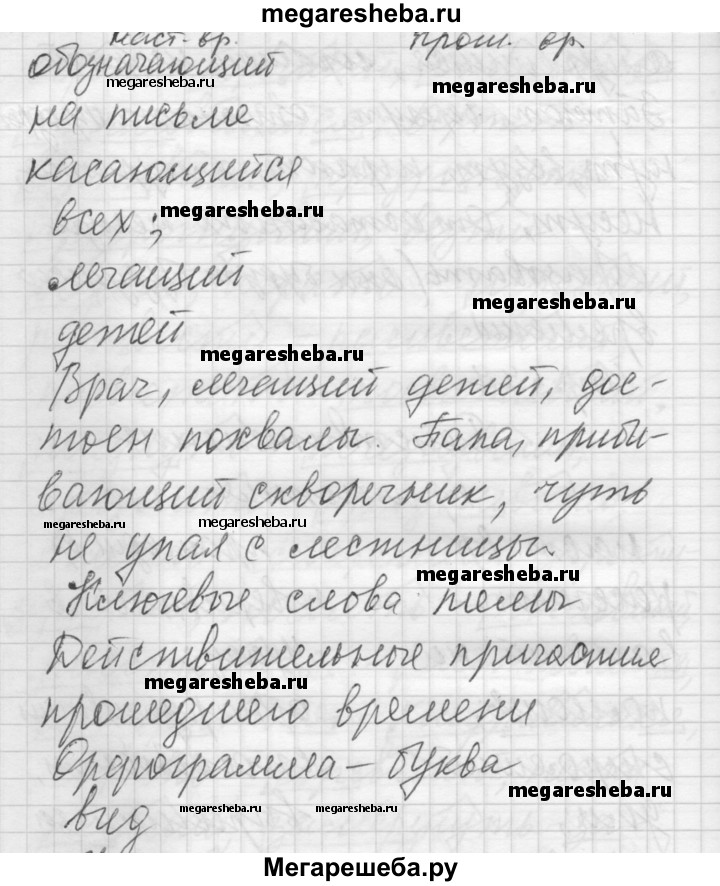 megaresheba.ru
наст. вр. прош. вр.
обозначающий
megaresheba.ru megaresheba.ru
на письме
касающийся
всех;
megaresheba.ru
лечащий
megaresheba.ru
детей
megaresheba.ru
Врач, лечащий детей, дос-
тоен похвалы. Папа, приби-
вающий скворечник, чуть
megaresheba.ru megaresheba.ru
не упал с лестницы.
megaresheba.ru
Ключевые слова темы
Действительные причастия
megaresheba.ru
прошедшего времени
Орфограмма – буква
megaresheba.ru
вид
megaresheba.ru megaresheba.ru
Мегарешеба.ру